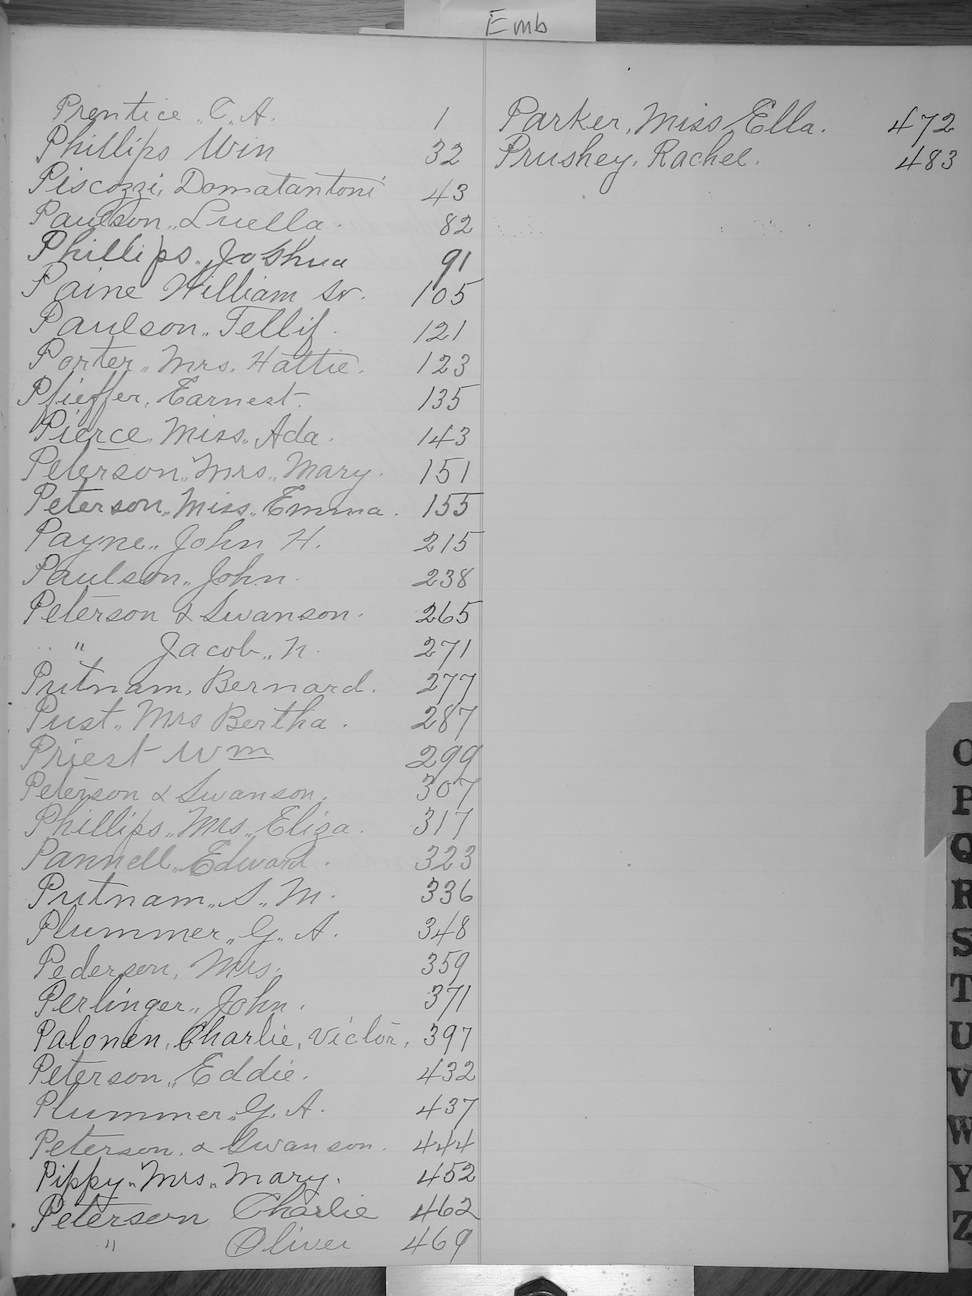 Emb
Prentice, C. A. 1
Phillips Win 32
Piscozzi, Domatantoni 43
Paulson,, Luella. 82
Phillips,, Joshua 91
Paine William Sr. 105
Paulson,, Tellif. 121
Porter,, Mrs. Hattie. 123
Pfieffer, Earnest. 135
Pierce, Miss,, Ada. 143
Peterson,, Mrs,, Mary. 151
Peterson,, Miss,, Emma. 155
Payne,, John H. 215
Paulson,, John. 238
Peterson & Swanson. 265
" Jacob,, N. 271
Putnam, Bernard. 277
Pust,, Mrs Bertha. 287
Priest Wm 299
Peterson & Swanson. 307
Phillips,, Mrs,, Eliza. 317
Pannell,, Edward. 323
Putnam,, S,, M. 336
Plummer,, G,, A. 348
Pederson, Mrs. 359
Perlinger,, John. 371
Palonen, Charlie, Victor, 397
Peterson,, Eddie. 432
Plummer,, G. A. 437
Peterson. & Swanson. 444
Pippy,, Mrs,, Mary. 452
Peterson Charlie 462
" Oliver 469
Parker, Miss, Ella. 472
Prushey, Rachel. 483
O
P
Q
R
S
T
U
V
W
Y
Z